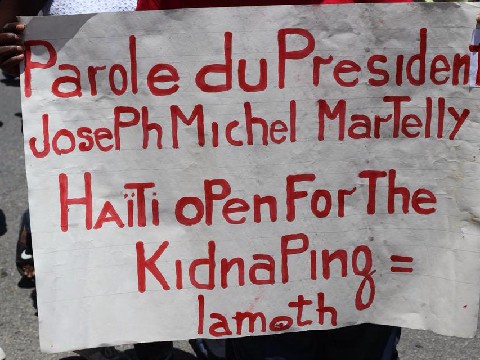 Parole du President
JosePh Michel MarTelly
HaïTi oPen For The
KidnaPing =
lamoth